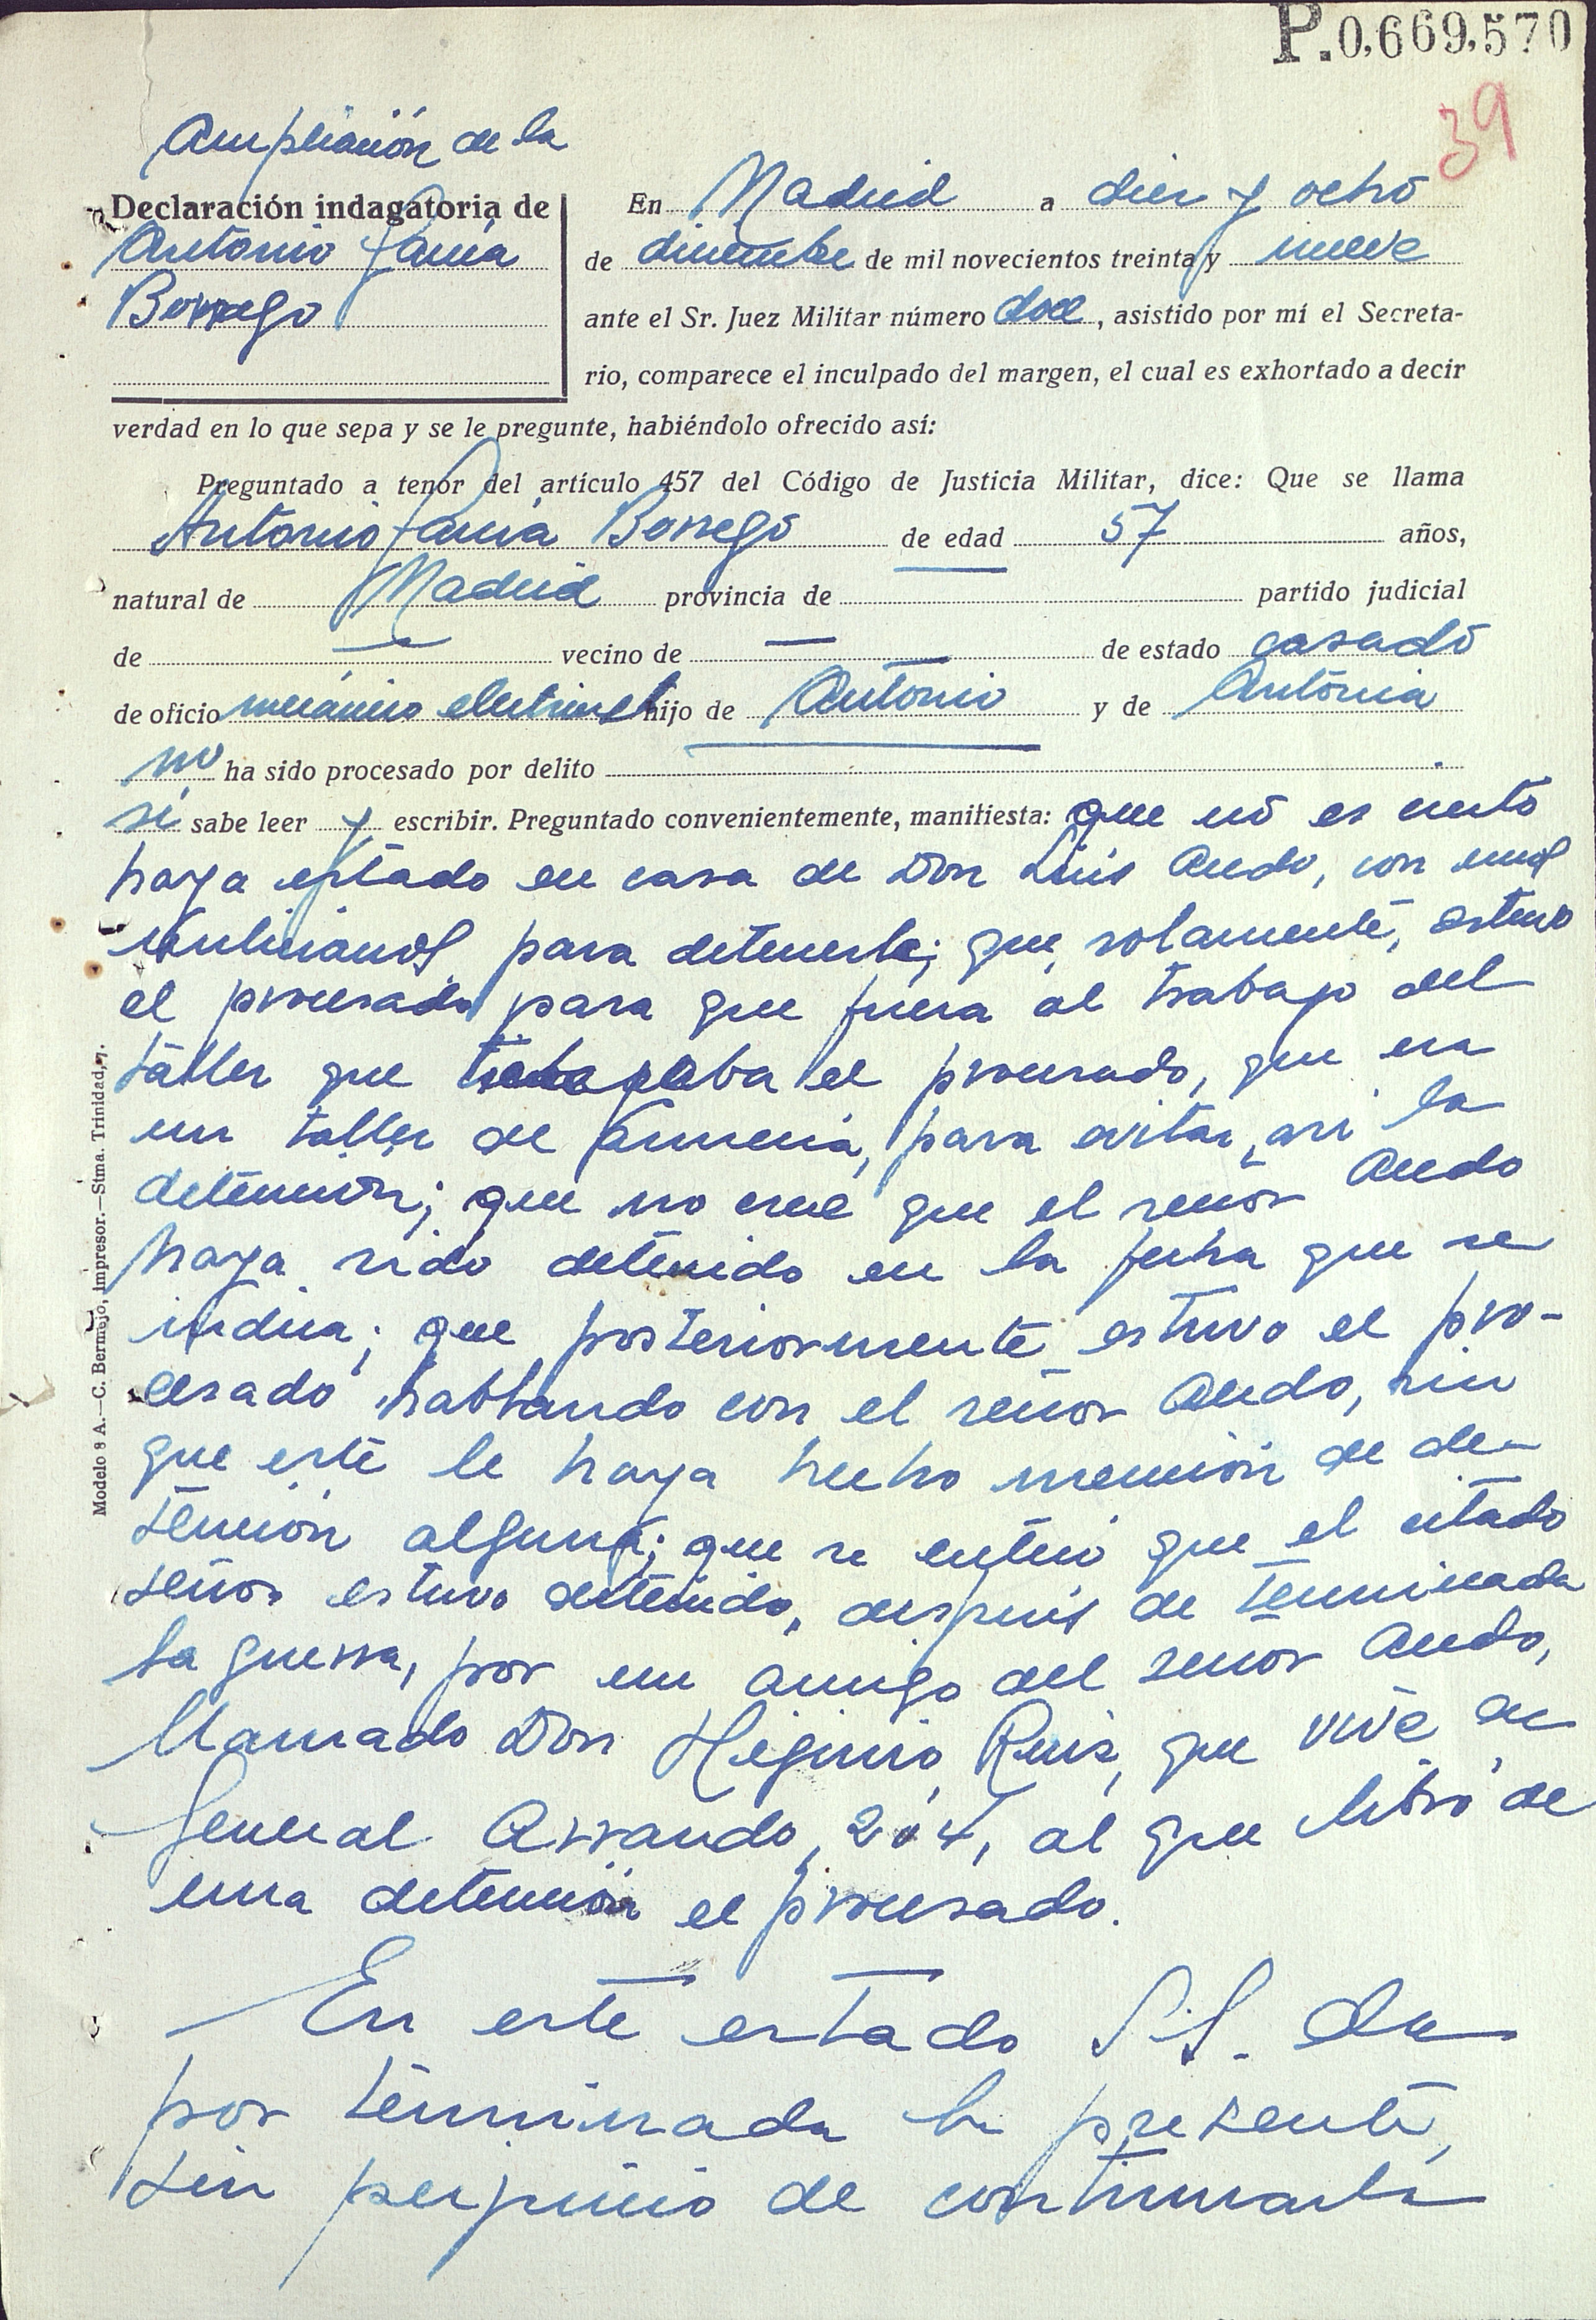 P.0,669,570
39
Ampliación de la
Declaración indagatoria de
Antonio García
Borrego
En Madrid a diez y ocho
de diciembre de mil novecientos treinta y nueve
ante el Sr. Juez Militar número doce, asistido por mí el Secreta-
rio, comparece el inculpado del margen, el cual es exhortado a decir
verdad en lo que sepa y se le pregunte, habiéndolo ofrecido así:
Preguntado a tenor del artículo 457 del Código de Justicia Militar, dice: Que se llama
Antonio García Borrego de edad 57 años,
natural de Madrid provincia de partido judicial
de — vecino de — de estado casado
de oficio mecánico electricista hijo de Antonio y de Antonia
no ha sido procesado por delito
sí sabe leer y escribir. Preguntado convenientemente, manifiesta: que no es cierto
haya estado en casa de Don Luis, con unos
milicianos, para detenerle; que, solamente, estuvo
el procesado para que fuera al trabajo del
taller que trabajaba el procesado, que era
un taller de, para evitar así la
detención; que no cree que el señor
haya sido detenido en la fecha que se
indica; que posteriormente estuvo el pro-
cesado hablando con el señor, sin
que este le haya hecho mención de de-
tención alguna; que se enteró que el citado
señor estuvo detenido, después de terminada
la guerra, por un amigo del señor,
llamado Don Higinio Ruiz, que vive en
General Arrando, 2 ó 4, al que libró de
una detención el procesado.
En este estado S.S. da
por terminada la presente,
sin perjuicio de continuarla
Modelo 8 A.—C. Bermejo, Impresor.—Stma. Trinidad, 7.